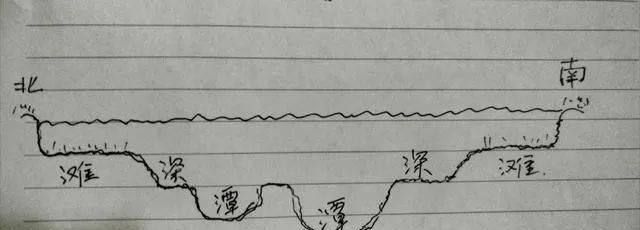 北 南
滩 深 潭 潭 深 滩